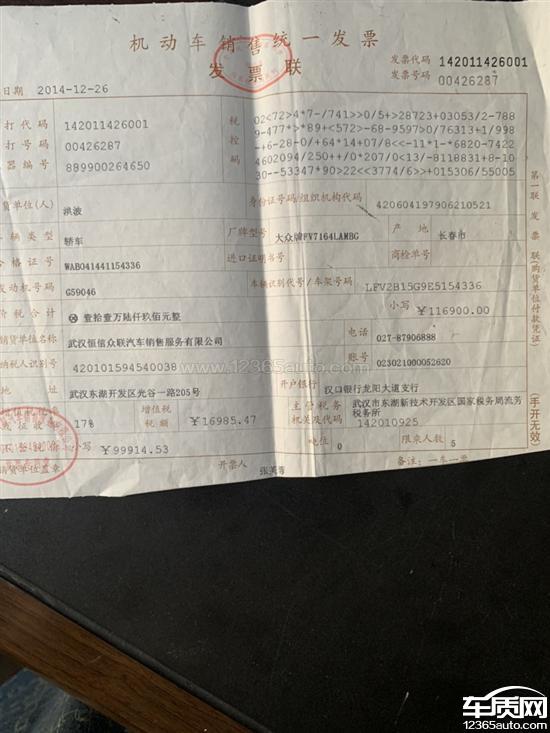 机动车销售统一发票
发票联
发票代码 142011426001
发票号码 00426287
日期 2014-12-26
打代码 142011426001
打号码 00426287
器编号 889900264650
税控码
02<72>4*7-/741>>0/5+>28723+03053/2-788
9-477*>*89+<572>-68-9597>0/76313+1/998
-+6-28-0/+64*14+07/8<<-11*1-*6820-7422
4602094/250++/0*207/0<13/-8118831+8-10
30--53347*90>22<3774/6>+015306/55005
货单位(人) 洪波
身份证号码/组织机构代码 420604197906210521
车辆类型 轿车
厂牌型号 大众牌FV7164LAMBG
产地 长春市
合格证号 WAB041441154336
进口证明书号
商检单号
发动机号码 G59046
车辆识别代号/车架号码 LFV2B15G9E5154336
价税合计 ⊗ 壹拾壹万陆仟玖佰元整
小写 ¥116900.00
货单位名称 武汉恒信众联汽车销售服务有限公司
电话 027-87906888
纳税人识别号 420101594540038
账号 023021000052620
地址 武汉东湖开发区光谷一路205号
开户银行 汉口银行龙阳大道支行
17%
增值税税额 ¥16985.47
主管税务机关及代码
武汉市东湖新技术开发区国家税务局流芳税务所
142010925
小写 ¥99914.53
吨位 0
限乘人数 5
货单位盖章
开票人
备注:一车一票
第一联 发票联(购货单位付款凭证)
(手开无效)
www.12365auto.com
车质网
12365auto.com